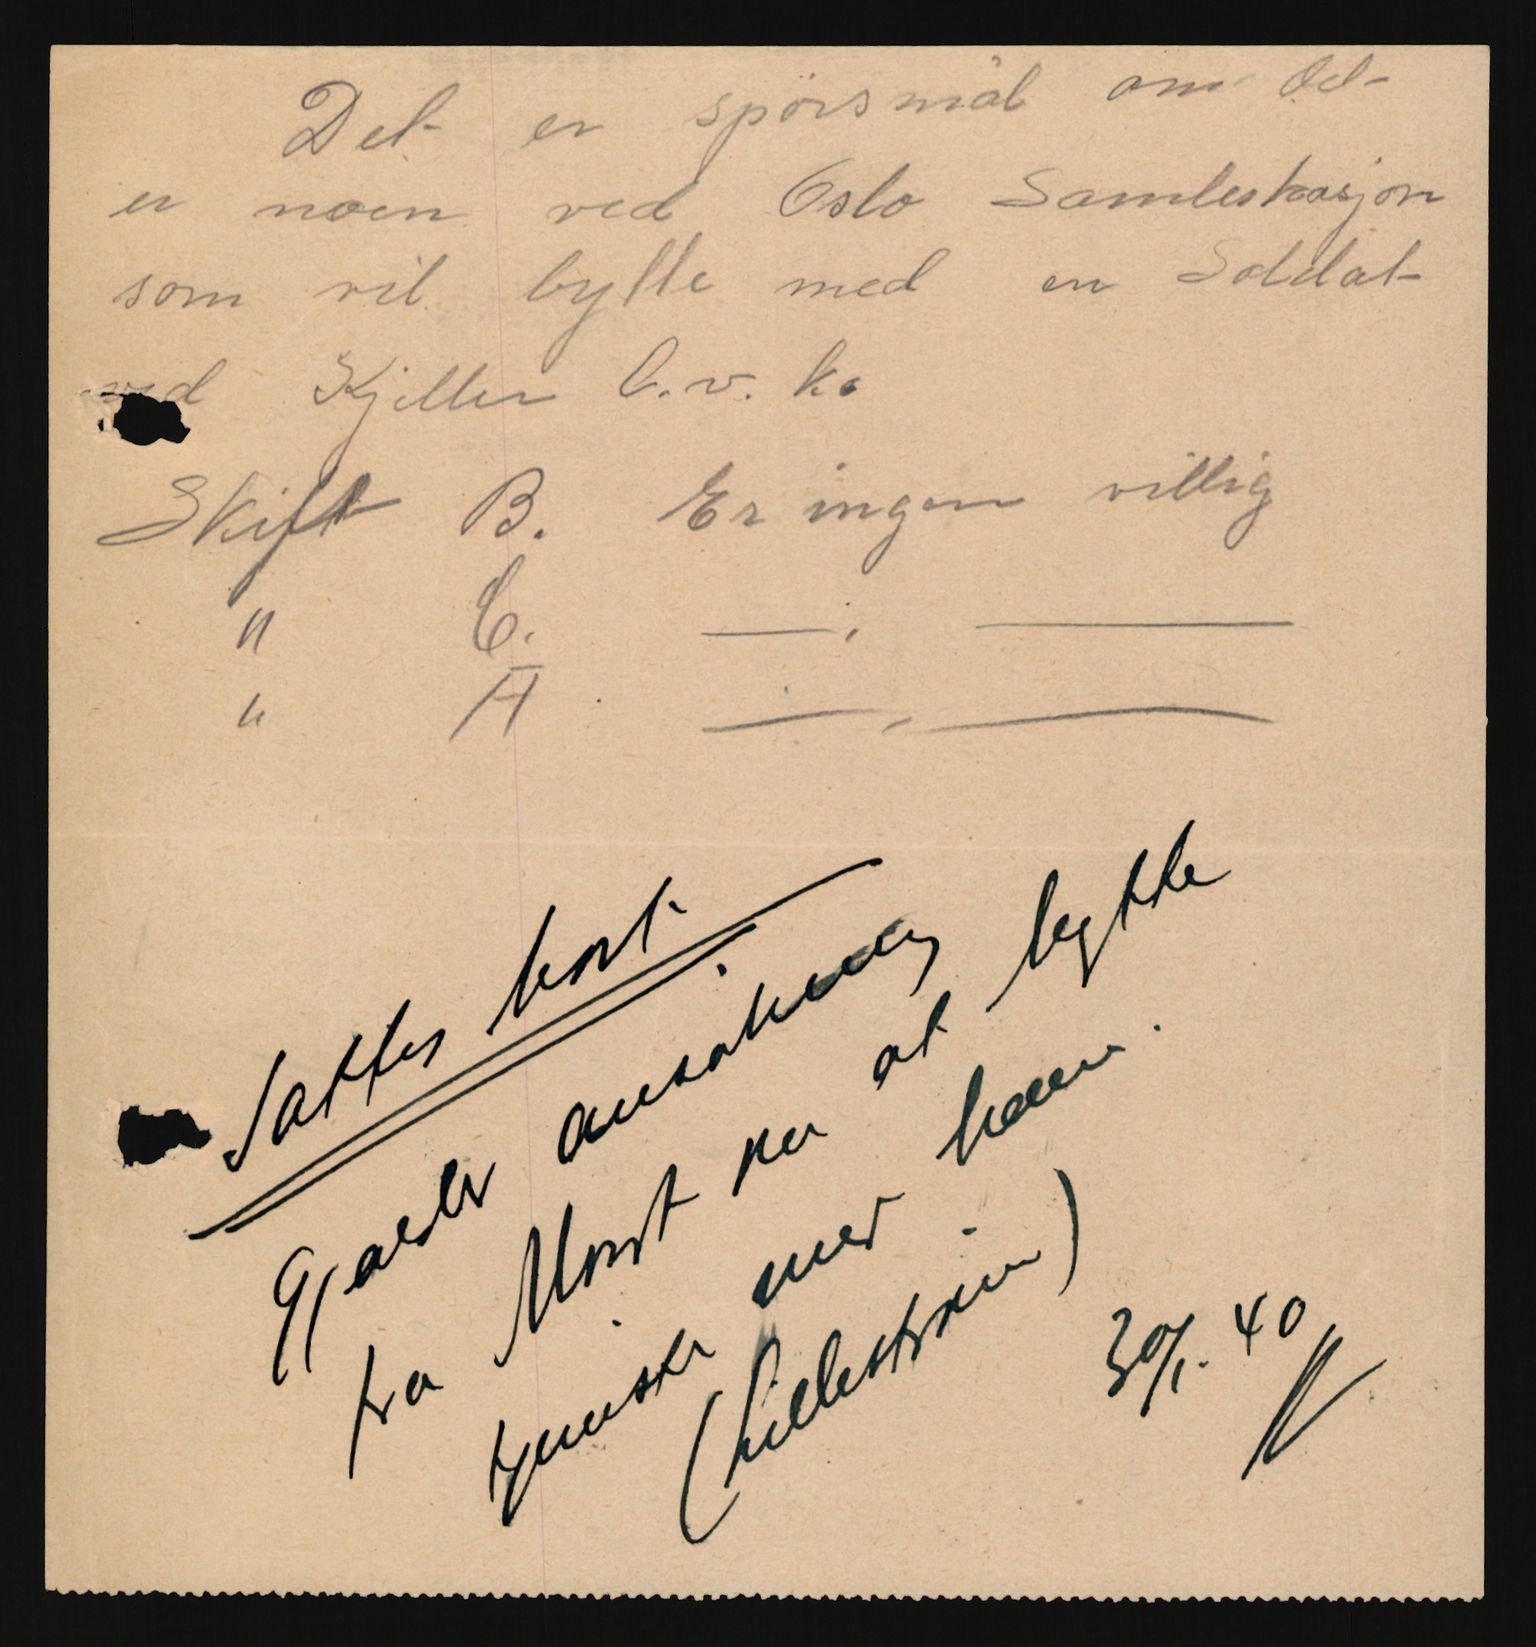 Det er spörsmål om det
er noen ved Oslo Samlestasjon
som vil bytte med en Soldat
ved Kjeller l.v. ko
Skift B. Er ingen villig
" C. — , —
" A — , —
Sattes bort.
Gjaldt ansökning
fra Moist ner at bytte
tjeneste med ham.
(Lillestrøm)
30/1. 40